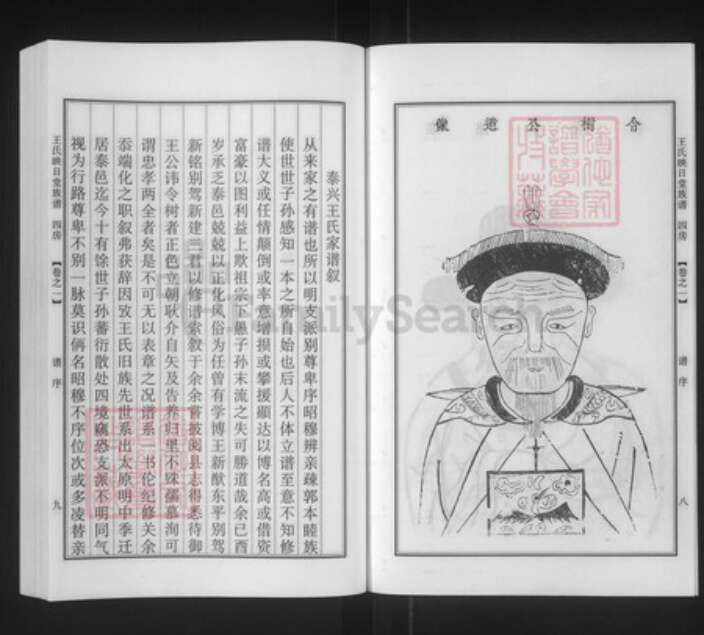 王氏映日堂族谱 四房 【卷之一】 谱序 八
令樹公道像
泰兴王氏家谱叙
从来家之有谱也所以明支派别尊卑序昭穆辨亲疎郭本睦族
使世世子孙感知一本之所自始也后人不体立谱至意不知修
谱大义或任情颠倒或率意增损或攀援顯达以博名高或借资
富豪以图利益上欺祖宗下愚子孙末流之失可勝道哉余己酉
岁承乏泰邑兢兢以正化风俗为任曾有学博王新猷东平别驾
新铭别驾新建三君以修谱索叙于余余嘗披阅县志得悉待御
王公讳令树者正色立朝耿介自矢及告养归里不殊孺慕洵可
谓忠孝两全者矣是不可无以表章之况谱系一书伦纪修关余
忝端化之职叙弗获辞因攷王氏旧族先世系出太原明中季迁
居泰邑迄今十有馀世子孙蕃衍散处四境窃恐支派不明同气
视为行路尊卑不别一脉莫识俩名昭穆不序位次或多凌替亲
王氏映日堂族谱 四房 【卷之一】 谱序 九
FamilySearch